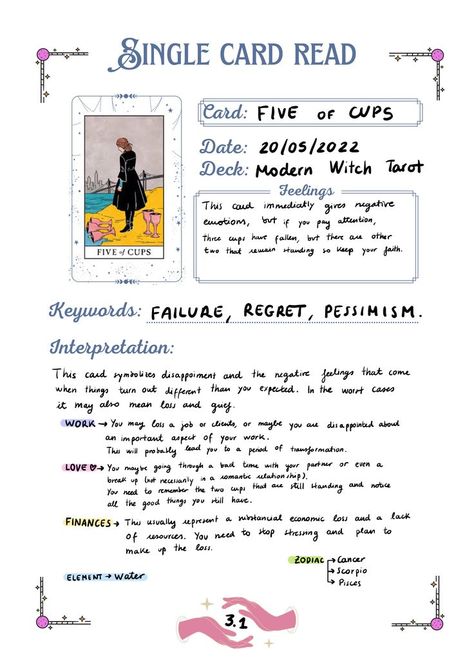 SINGLE CARD READ
Card: FIVE OF CUPS
Date: 20/05/2022
Deck: Modern Witch Tarot
Feelings
This card immediately gives negative
emotions, but if you pay attention,
three cups have fallen, but there are other
two that remain standing so keep your faith.
FIVE of CUPS
Keywords: FAILURE, REGRET, PESSIMISM.
Interpretation:
This card symbolises disappoiment and the negative feelings that come
when things turn out different than you expected. In the worst cases
it may also mean loss and grief.
WORK → You may loss a job or clients, or maybe you are disappointed about
an important aspect of your work.
This will probably lead you to a period of transformation.
LOVE ♡ → You maybe going through a bad time with your partner or even a
break up (not necessarily in a romantic relationship).
You need to remember the two cups that are still standing and notice
all the good things you still have.
FINANCES → This usually represent a substancial economic loss and a lack
of resources. You need to stop stressing and plan to
make up the loss.
ZODIAC → Cancer
→ Scorpio
→ Pisces
ELEMENT → Water
3.1